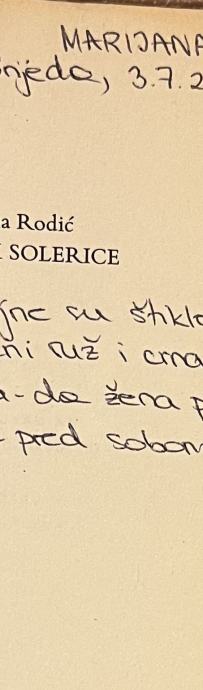 MARIJANA
njeda, 3.7.2
a Rodić
SOLERICE
jne su štikle
ni ruž i crna
a-da žena p
pred sobom